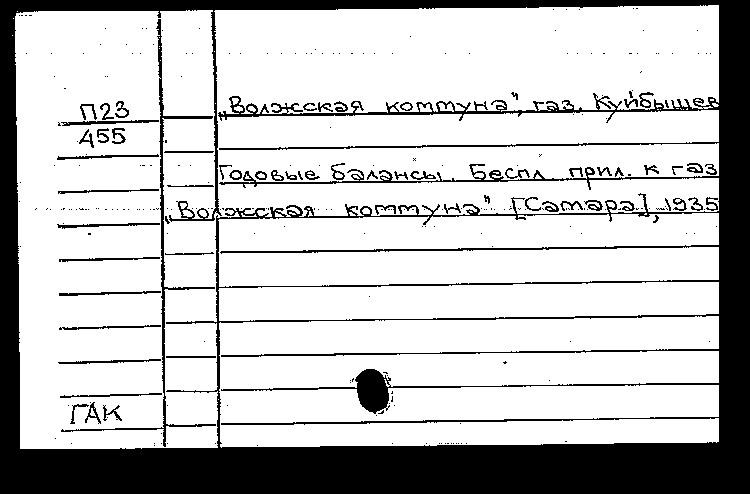 П23
455
„Волжская коммуна", газ. Куйбышев
Годовые балансы. Беспл. прил. к газ
„Волжская коммуна". [Самара], 1935
ГАК